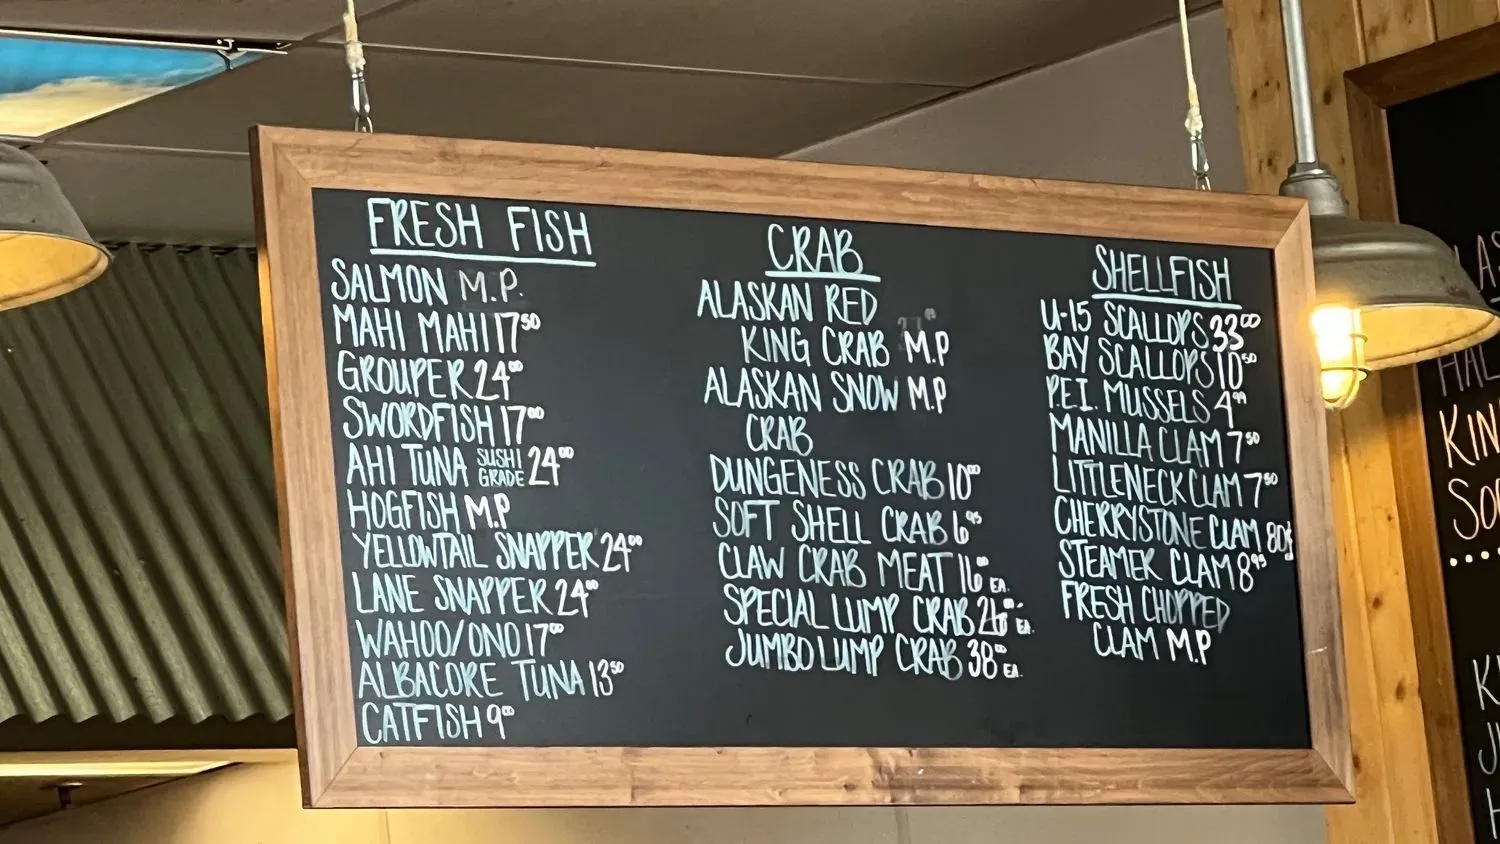 FRESH FISH
SALMON M.P.
MAHI MAHI 17⁵⁰
GROUPER 24⁰⁰
SWORDFISH 17⁰⁰
AHI TUNA SUSHI GRADE 24⁰⁰
HOGFISH M.P
YELLOWTAIL SNAPPER 24⁰⁰
LANE SNAPPER 24⁰⁰
WAHOO/ONO 17⁰⁰
ALBACORE TUNA 13⁵⁰
CATFISH 9⁰⁰
CRAB
ALASKAN RED
KING CRAB M.P
ALASKAN SNOW M.P
CRAB
DUNGENESS CRAB 10⁰⁰
SOFT SHELL CRAB 6⁹⁵
CLAW CRAB MEAT 16⁰⁰ EA.
SPECIAL LUMP CRAB 26⁰⁰ EA.
JUMBO LUMP CRAB 38⁰⁰ EA.
SHELLFISH
U-15 SCALLOPS 33⁰⁰
BAY SCALLOPS 10⁵⁰
P.E.I. MUSSELS 4⁹⁹
MANILLA CLAM 7⁵⁰
LITTLENECK CLAM 7⁵⁰
CHERRYSTONE CLAM 80¢
STEAMER CLAM 8⁹⁵
FRESH CHOPPED
CLAM M.P